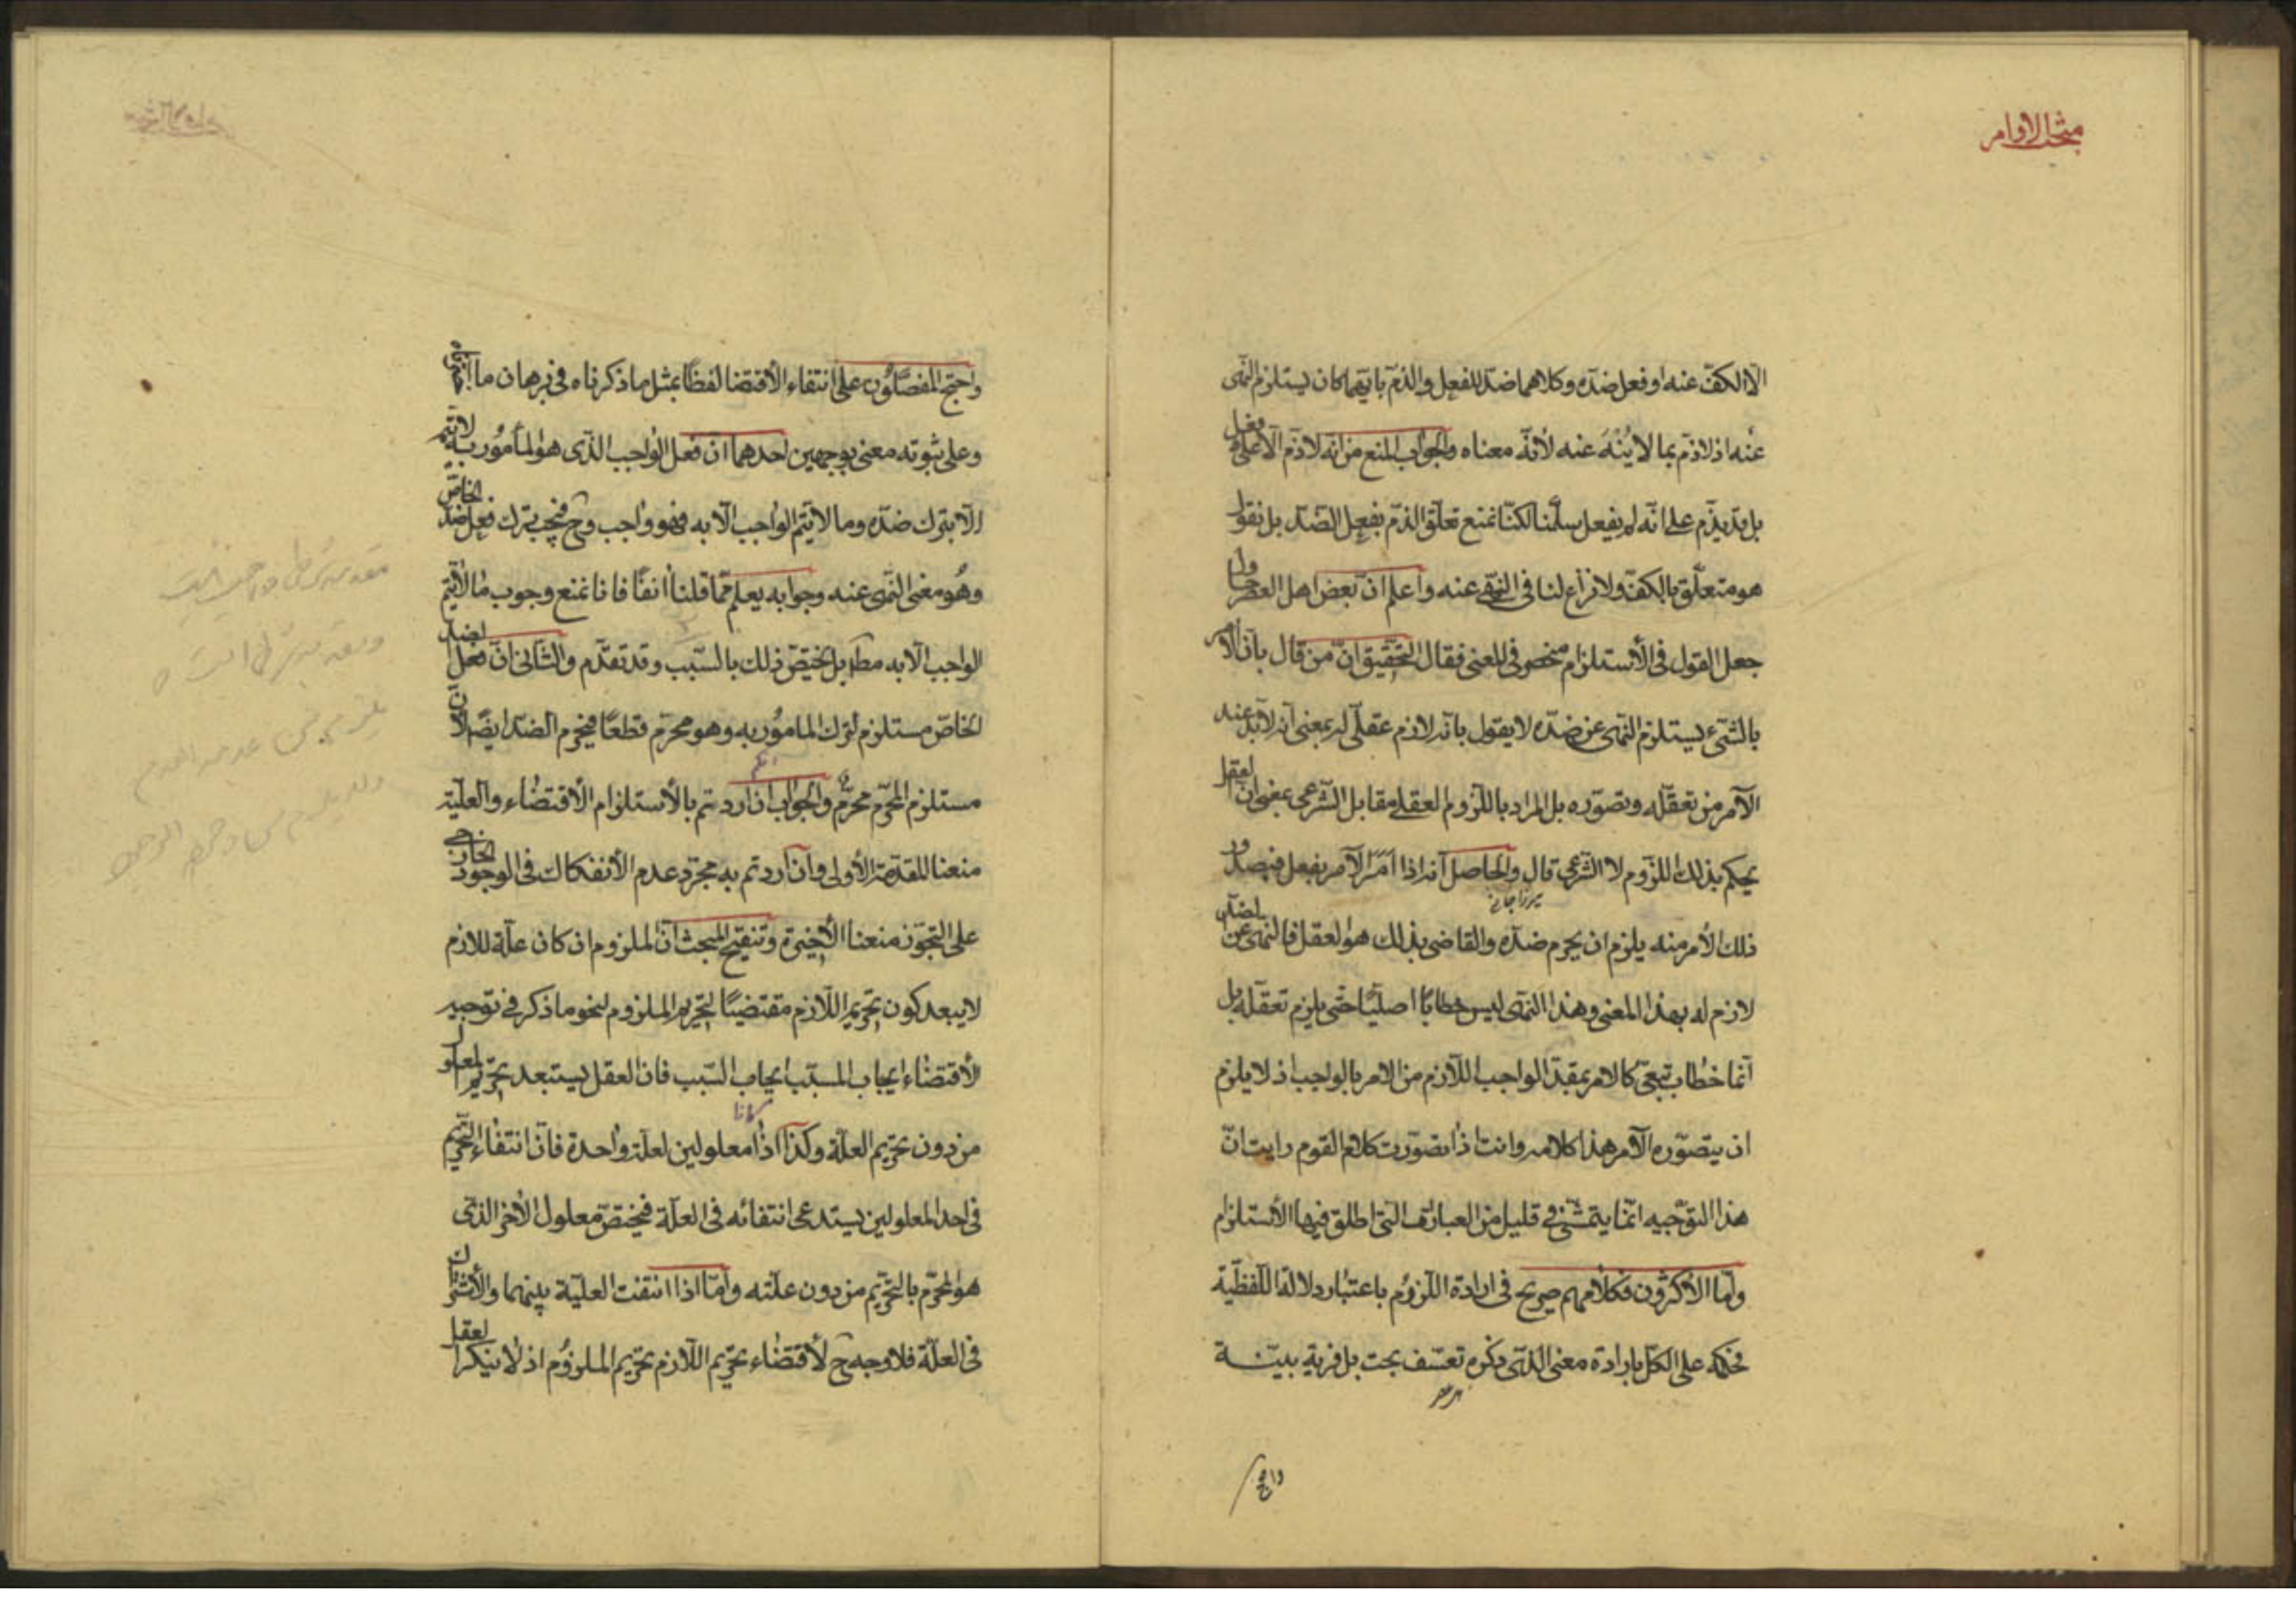 مبحث الاوامر
الّا الكفّ عنه او فعل ضدّه وكلاهما ضدّ للفعل والذمّ بايّهما كان يستلزم النّهى
عنه اذ لا ذمّ بما لا يُنْهَ عنه لأنّه معناه والجواب المنع من انّه لا ذمّ الّا على فعل
بل قد يذمّ على انّه لم يفعل سلّمنا لكنّا نمنع تعلّق الذمّ بفعل الضدّ بل نقول
هو متعلّق بالكفّ ولا نزاع لنا فى النّهى عنه واعلم انّ بعض اهل العصر حاول
جعل القول فى الأستلزام منحصر فى المعنى فقال التحقيق انّ من قال بانّ الأمر
بالشّىء يستلزم النّهى عن ضدّه لا يقول بانّه لازم عقلىّ له بمعنى انّه لا بدّ عند
الآمر من تعقّله وتصوّره بل المراد باللّزوم العقلى مقابل الشّرعى بمعنى انّ العقل
يحكم بذلك اللّزوم لا الشّرع قال والحاصل انّه اذا امر الآمر بفعل فبصدور
ميرزا جان
ذلك الأمر منه يلزم ان يحرم ضدّه والقاضى بذلك هو العقل فالنّهى عن الضدّ
لازم له بهذا المعنى وهذا النّهى ليس خطابًا اصليّا حتّى يلزم تعقّله بل
انّما خطاب تبعىّ كالامر بمقدّمة الواجب اللّازم من الامر بالواجب اذ لا يلزم
ان يتصوّره الآمر هذا كلامه وانت اذا تصوّرت كلام القوم رايت انّ
هذا التوجيه انّما يتمشّى فى قليل من العبارات التى اطلق فيها الأستلزام
وامّا الأكثرون فكلامهم صريح فى ارادة اللّزوم باعتبار دلالة اللّفظيّة
فحكمه على الكلّ بارادة معنى الذى ذكره تعسّف بحت بل فرية بيّنة
واحتج
واحتجّ المفصّلون على انتفاء الأقتضا لفظًا بمثل ما ذكرناه فى برهان ما اخترناه
وعلى ثبوته معنى بوجهين احدهما انّ فعل الواجب الذّى هو المأمور به لا يتم
الّا بترك ضدّه وما لا يتمّ الواجب الّا به فهو واجب وح فيجب ترك فعل ضدّ الخاصّ
وهو معنى النّهى عنه وجوابه يعلم ممّا قلنا انفًا فانا نمنع وجوب ما لا يتمّ
الواجب الّا به مطلقا بل يختصّ ذلك بالسّبب وقد تقدّم والثانى انّ فعل الضدّ
الخاصّ مستلزم لترك المأمور به وهو محرّم قطعًا فيحرم الضدّ ايضًا لانّ
مستلزم المحرّم محرّم والجواب ان اردتم بالأستلزام الأقتضاء والعليّة
منعنا المقدّمة الأولى وان اردتم به مجرّد عدم الأنفكاك فى الوجود الخارجى
على التجوّز منعنا الأخيرة وتنقيح المبحث انّ الملزوم ان كان علّة للازم
لا يبعد كون تحريم اللّازم مقتضيًا لتحريم الملزوم لنحو ما ذكر فى توجيه
الأقتضاء ايجاب المسبّب ايجاب السّبب فان العقل يستبعد تحريم المعلول
من دون تحريم العلّة وكذا اذا كانا معلولين لعلّة واحدة فانّ انتفاء التحريم
فى احد المعلولين يستدعى انتفائه فى العلّة فيختصّ معلول الأخر الذى
هو المحرّم بالتحريم من دون علّته وامّا اذا انتفت العليّة بينهما والأشتراك
فى العلّة فلا وجه ح لأقتضاء تحريم اللّازم تحريم الملزوم اذ لا ينكر العقل